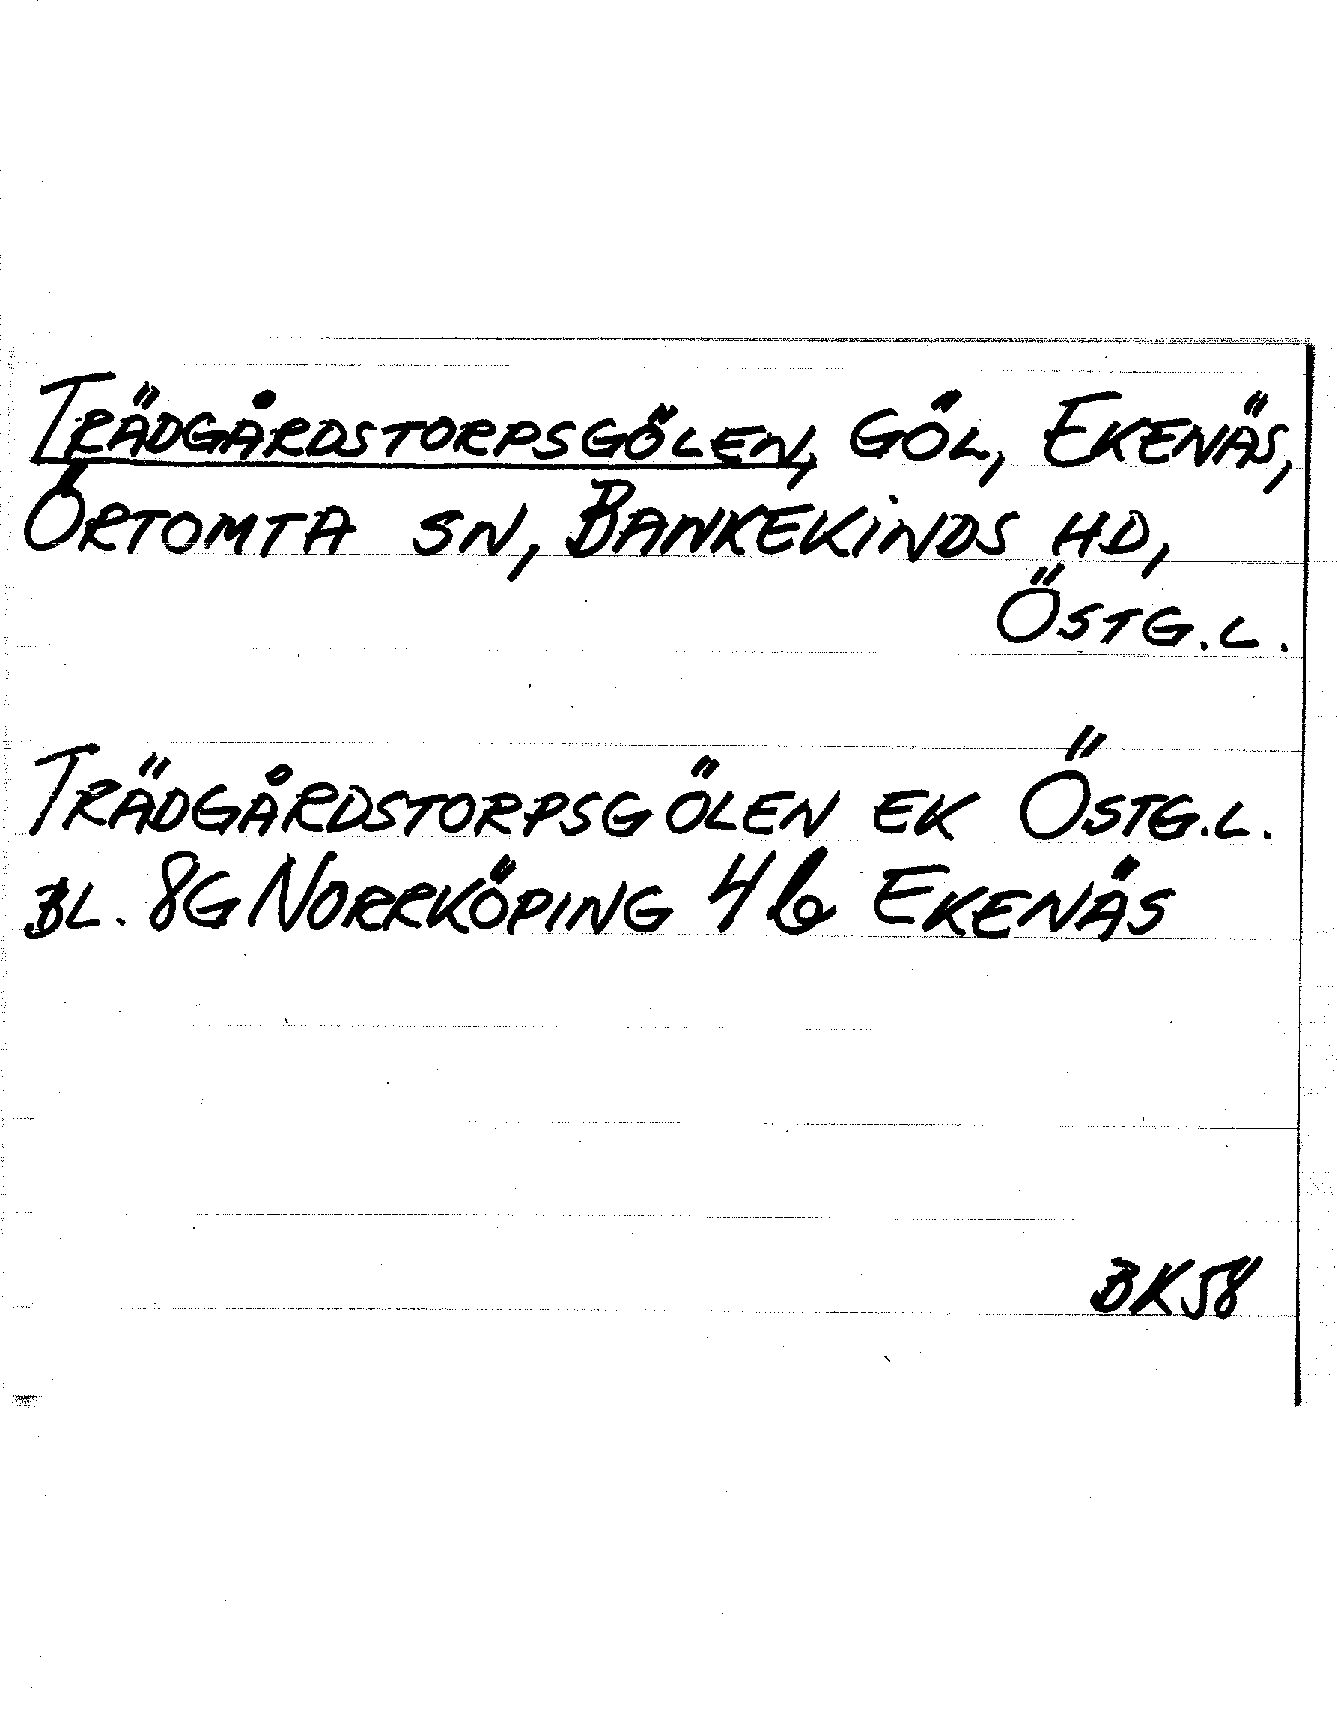 TRÄDGÅRDSTORPSGÖLEN, GÖL, EKENÄS,
ÖRTOMTA SN, BANKEKINDS HD,
ÖSTG.L.
TRÄDGÅRDSTORPSGÖLEN EK ÖSTG.L.
BL. 8G NORRKÖPING 4b EKENÄS
BK58